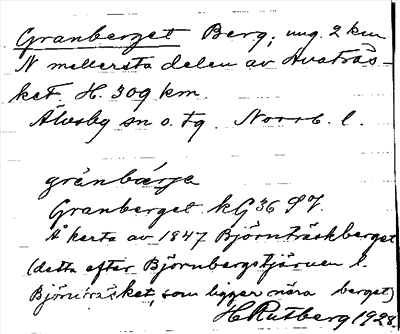 Granberget Berg; ung. 2 km
N mellersta delen av Avaträs-
ket. H. 309 km.
Älvsby sn o. tg. Norrb. l.
grànbœ́rjə
Granberget kG 36 SV.
Å karta av 1847 Björnträskberget
(detta efter Björnbergstjärnen l.
Björnträsket, som ligger nära berget)
H Rutberg 1928.